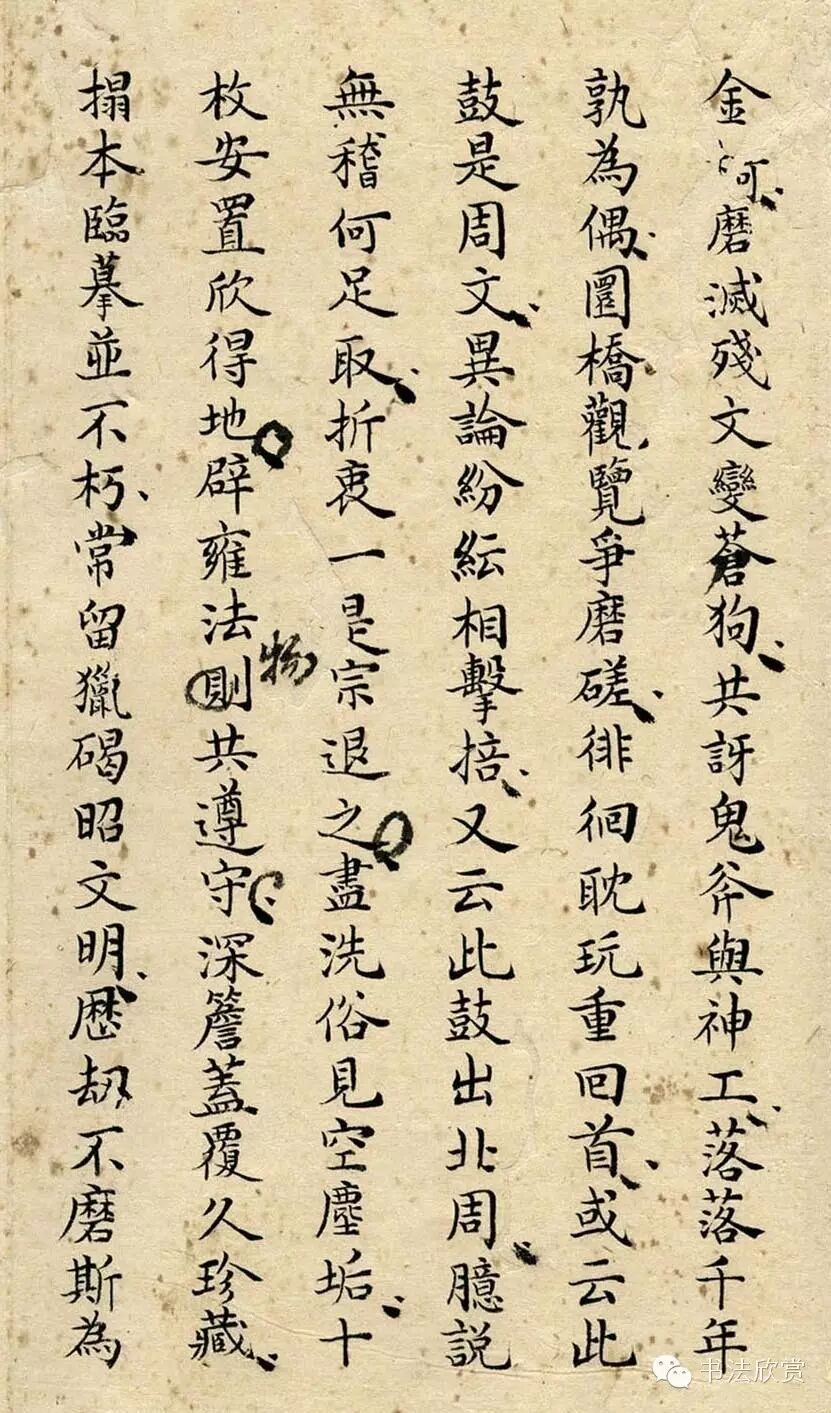 金呵磨滅殘文變蒼狗共訝鬼斧與神工落落千年
孰為偶圜橋觀覽爭磨磋徘徊耽玩重回首或云此
鼓是周文異論紛紜相擊掊又云此鼓出北周臆說
無稽何足取折衷一是宗退之盡洗俗見空塵垢十
枚安置欣得地辟雍法則共遵守深簷蓋覆久珍藏
物
搨本臨摹並不朽常留獵碣昭文明歷劫不磨斯為
书法欣赏